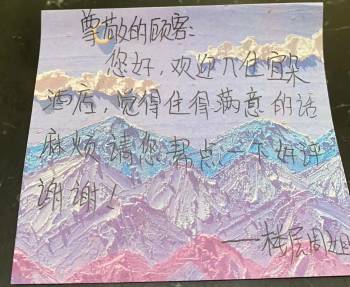 尊敬的顾客:
您好,欢迎入住宜朵
酒店,觉得住得满意的话
麻烦请您帮点一下好评
谢谢!
——楼层周姐